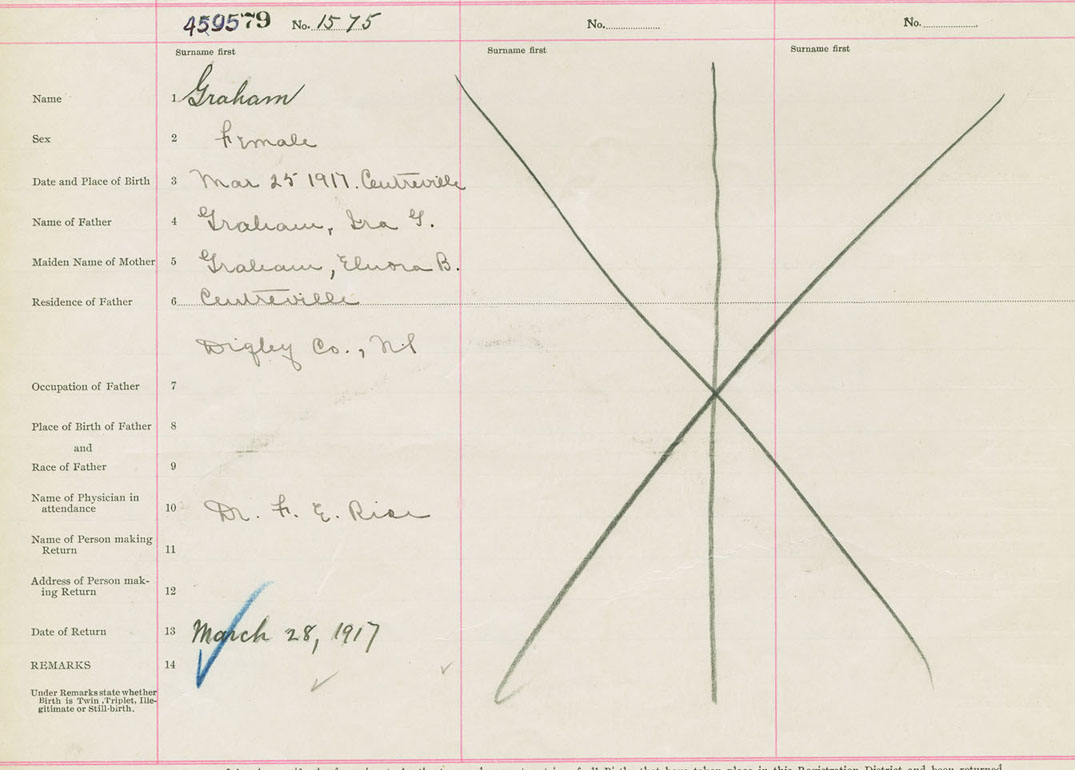 459579 No. 1575 No. No.
Surname first Surname first Surname first
Name 1 Graham
Sex 2 Female
Date and Place of Birth 3 Mar 25 1917. Centreville
Name of Father 4 Graham, Ira G.
Maiden Name of Mother 5 Graham, Elnora B.
Residence of Father 6 Centreville
Digby Co., NS
Occupation of Father 7
Place of Birth of Father 8
and
Race of Father 9
Name of Physician in
attendance 10 Dr. F. E. Rice
Name of Person making
Return 11
Address of Person mak-
ing Return 12
Date of Return 13 March 28, 1917
REMARKS 14
Under Remarks state whether
Birth is Twin, Triplet, Ille-
gitimate or Still-birth.